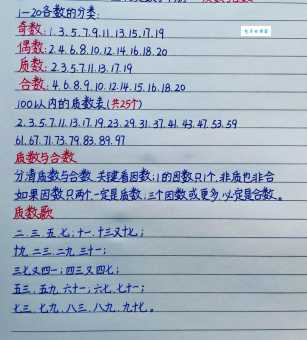 1-20各数的分类:
奇数:1.3.5.7.9.11.13.15.17.19
偶数:2.4.6.8.10.12.14.16.18.20
质数:2.3.5.7.11.13.17.19
合数:4.6.8.9.10.12.14.15.16.18.20
100以内的质数表(共25个)
2.3.5.7.11.13.17.19.23.29.31.37.41.43.47.53.59
61.67.71.73.79.83.89.97
质数与合数
分清质数与合数,关键看因数,1的因数只1个,非质也非合
如果因数只两个一定是质数,三个因数或更多必定是合数。
质数歌
二.三.五.七;十一.十三又十七;
十九.二三.二九.三十一;
三七又四一;四三又四七;
五三.五九.六十一;六七.七十一;
七三.七九.八三.八九.九十七。